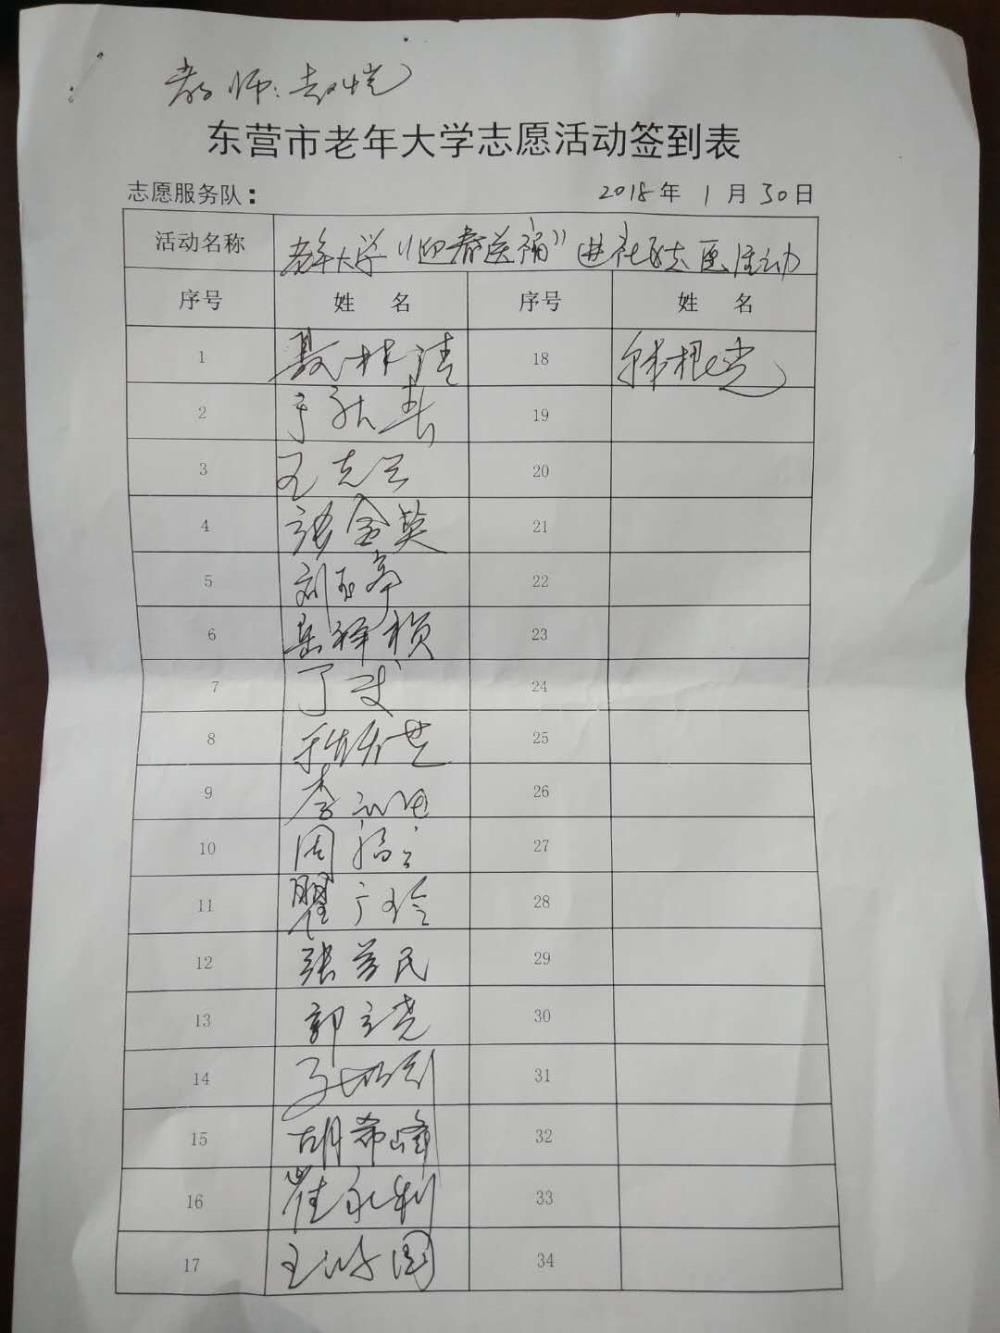 教师:赵恺
东营市老年大学志愿活动签到表
志愿服务队: 2018年 1月 30日
活动名称 老年大学“迎春送福”进社区志愿活动
序号 姓 名 序号 姓 名
1 聂林清 18
2 于 春 19
3 王克兰 20
4 张金英 21
5 刘玉亭 22
6 岳祥祯 23
7 丁 24
8 25
9 李 26
10 周 27
11 翟广玲 28
12 张芳民 29
13 郭立尧 30
14 31
15 胡希峰 32
16 崔永利 33
17 王 国 34